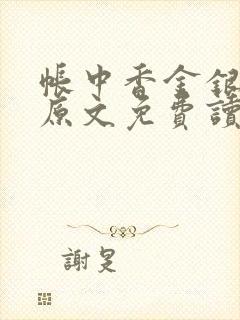 帳中香金銀
原文免費讀
謝旻